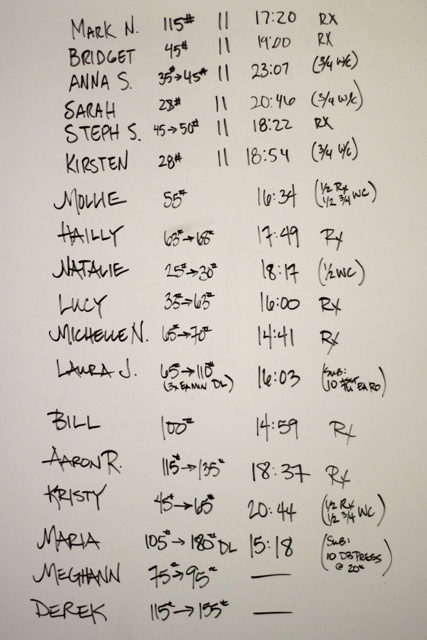 MARK N. 115# || 17:20 RX
BRIDGET 45# || 19:00 RX
ANNA S. 35#→45# || 23:07 (3/4 WC)
SARAH 28# || 20:46 (3/4 WC)
STEPH S. 45→50# || 18:22 RX
KIRSTEN 28# || 18:54 (3/4 WC)
MOLLIE 55# 16:34 (1/2 RX
1/2 3/4 WC)
HAILLY 63#→68# 17:49 RX
NATALIE 25#→30# 18:17 (1/2 WC)
LUCY 33#→63# 16:00 RX
MICHELLE N. 65#→70# 14:41 RX
LAURA J. 65#→110# 16:03 (SUB:
(3x EA MIN DL) 10 EA RD)
BILL 100# 14:59 RX
AARON R. 115#→135# 18:37 RX
KRISTY 45#→65# 20:44 (1/2 RX
1/2 3/4 WC)
MARIA 105#→185# DL 15:18 (SUB:
10 DB PRESS
@ 20#)
MEGHANN 75#→95# —
DEREK 115#→155# —